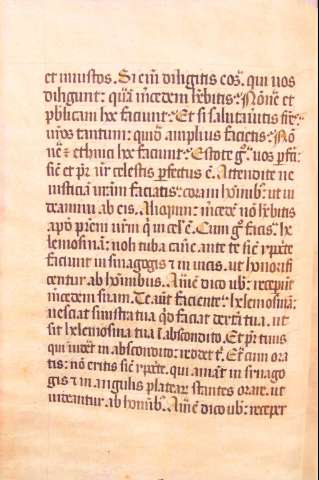 et iniustos. Si enĩ diligitis eos. qui uos
diligunt: quã mcedem hrẽbitis: Nõne et
publicani hec faciunt: Et si salutaũitis frẽs
uros tantum: quid amplius facietis: Nõ
ne et ethnici hec faciunt: Estote gͦ uos pfcti:
sic et pr ur celestis perfectus ẽ. Attendite ne
iusticiã urãm faciatis: coram hoĩnibꝰ: ut ui
deamini ab eis. Alioquin: mcedẽ nõ hẽbitis
apđ prẽm urm qͥ in cel ẽ. Cum gͦ facis. he
lemosinã: noli tuba canẽ. ante te sic ypcte
faciunt in sinagogis et in uicis. ut honorifi
centur ab hoĩnibus. Amẽ dico uob: recepunt
mcedem suam. Te aut faciente: helemosinã:
nesciat sinistra tua qd faciat dextra tua. ut
sit helemosina tua ĩ abscondito. Et pr tuus
qui uidet in abscondito: reddet t. Et cum ora
tis: nõ eritis sic ypcte. qui amãt in sinago
gis et in angulis platear stantes orare. ut
uideantur ab hoĩb. Amẽ dico uob: receper